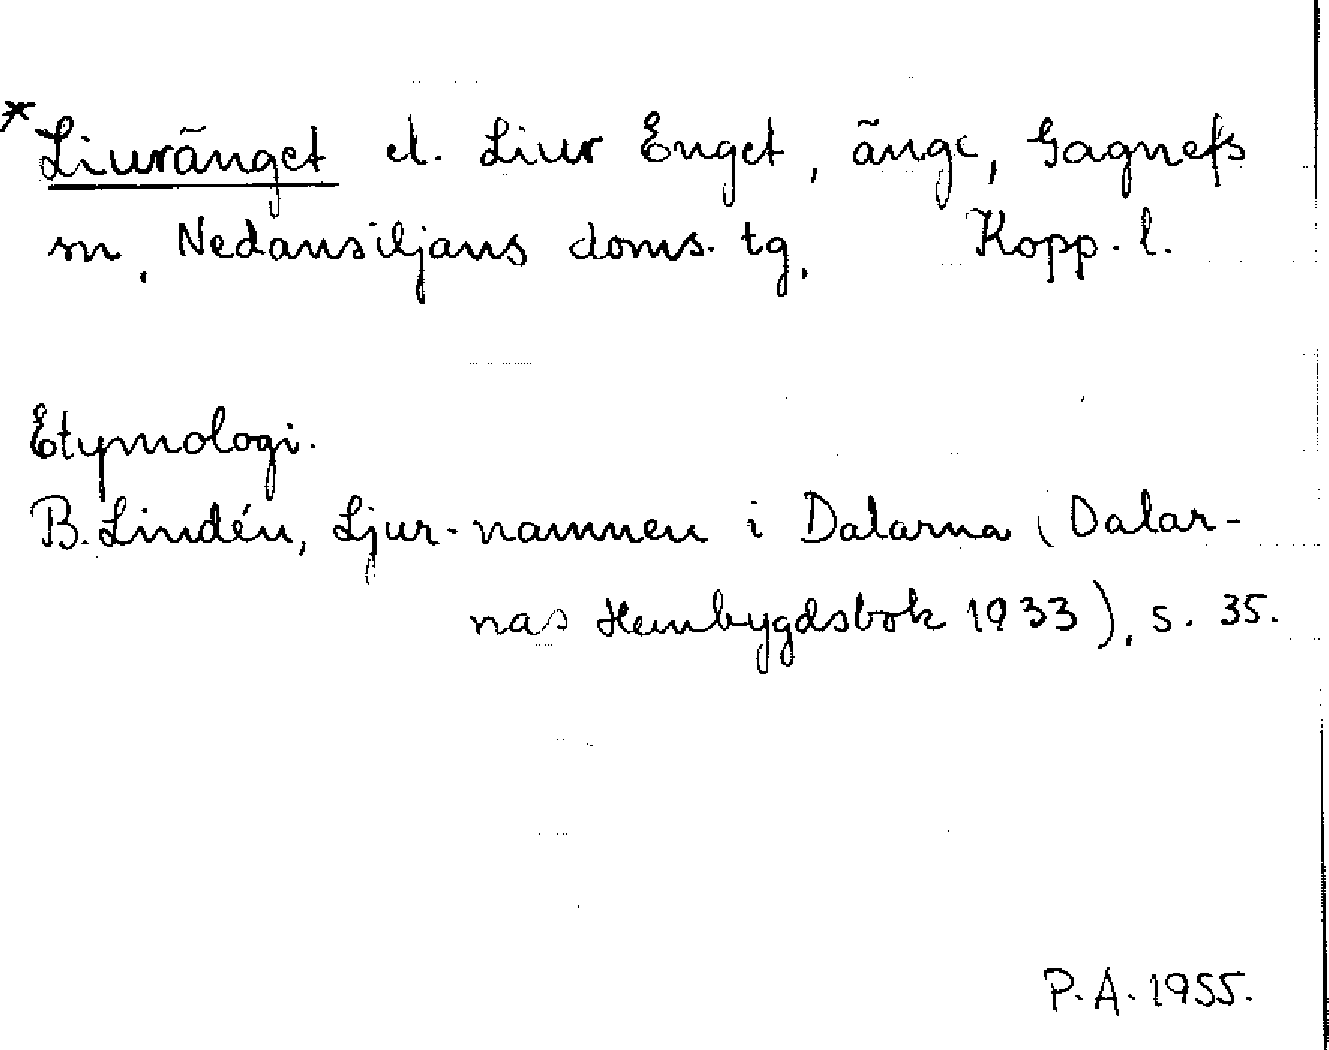 *Liuränget el. Liur Enget, änge, Gagnefs
sn, Nedansiljans doms. tg, Kopp. l.
Etymologi.
B. Lindén, Ljur-namnen i Dalarna (Dalar-
nas Hembygdsbok 1933), s. 35.
P. A. 1955.